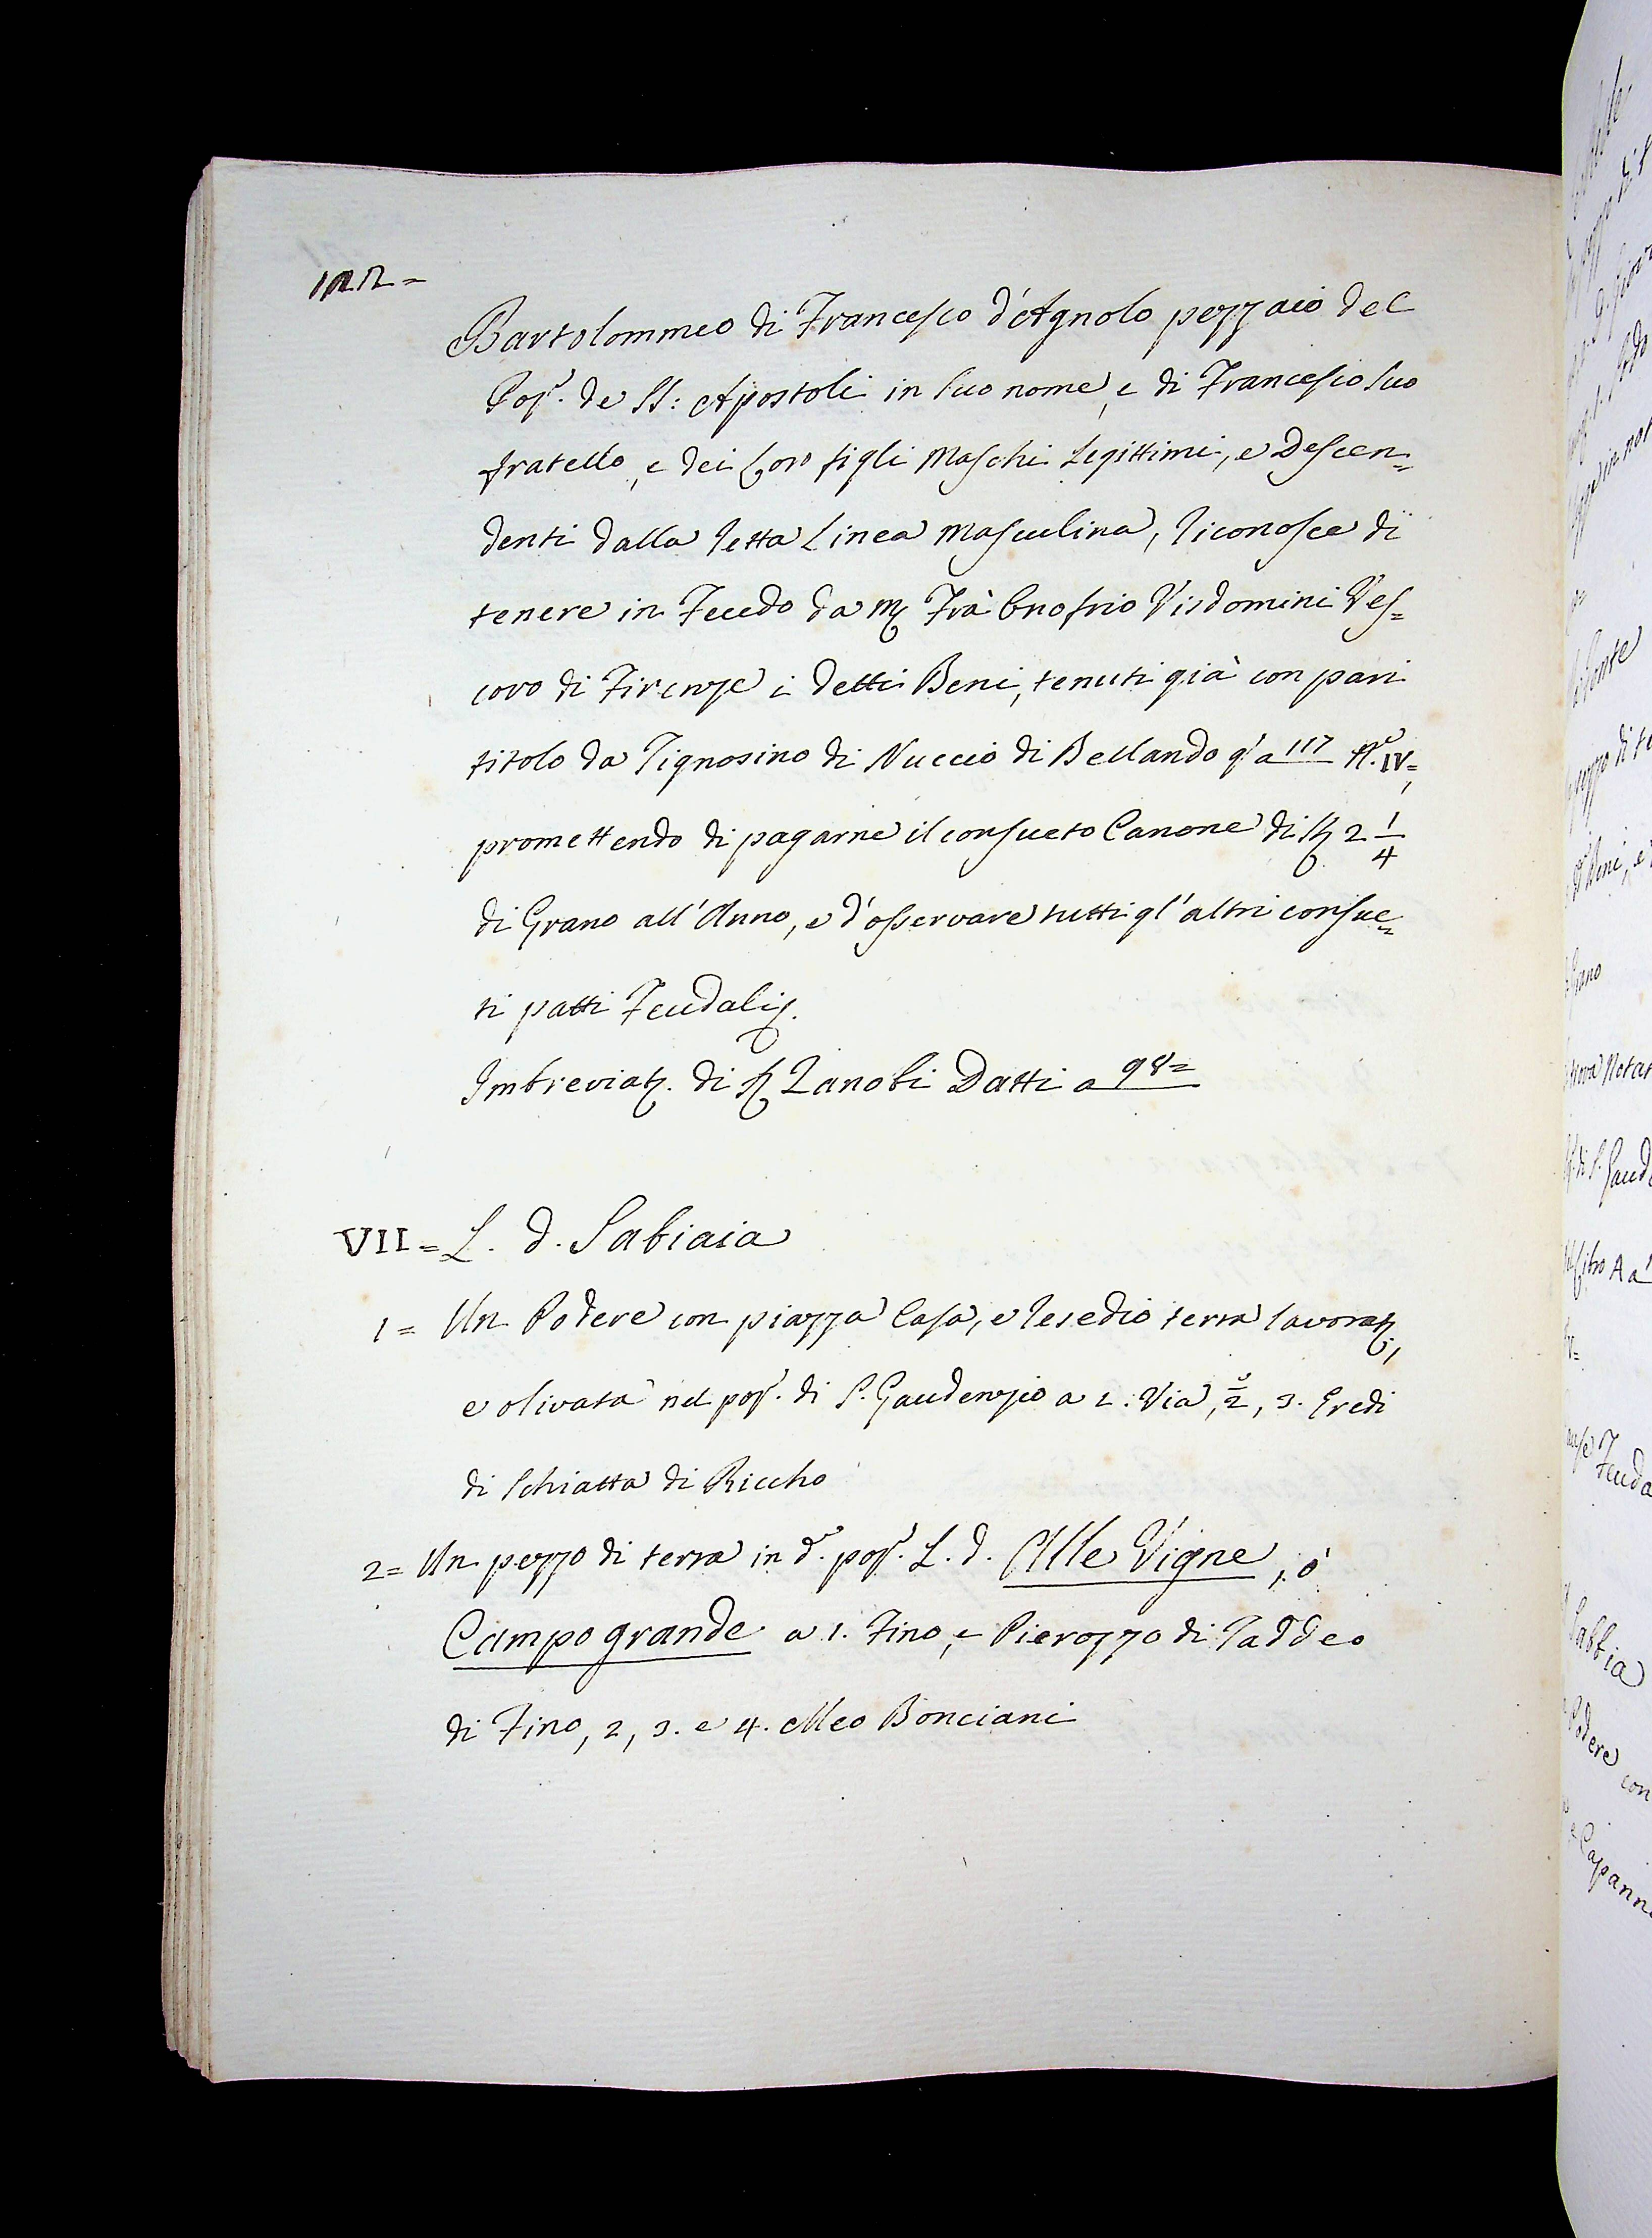 122=
Bartolommeo di Francesco d'Agnolo pezzaio del
Pop.º de SS: Apostoli in suo nome, e di Francesco suo
fratello, e dei Loro figli Maschi Legittimi, e Descen=
denti dalla retta Linea Masculina, riconosce di
tenere in Feudo da M. Frà Onofrio Visdomini Ves=
covo di Firenze i detti Beni, tenuti già con pari
titolo da Tignosino di Nuccio di Bellando q.ª a 117 N.º IV=,
promettendo di pagarne il consueto Canone di St. 2 1/4
di Grano all'Anno, e d'osservare tutti gl'altri consue=
ti patti Feudali.
Imbreviat. di S. Zanobi Datti a 98=
VII= L. d. Sabiaia
1= Un Podere con piazza Casa, e resedio terra lavorat.,
e olivata nel pop.º di S. Gaudenzio a 1. Via, 2º, 3. Eredi
di Schiatta di Riccho
2= Un pezzo di terra in d.º pop.º L. d. Alle Vigne, ò
Campo grande a 1. Fino, e Pierozzo di Taddeo
di Fino, 2, 3. e 4. Meo Bonciani